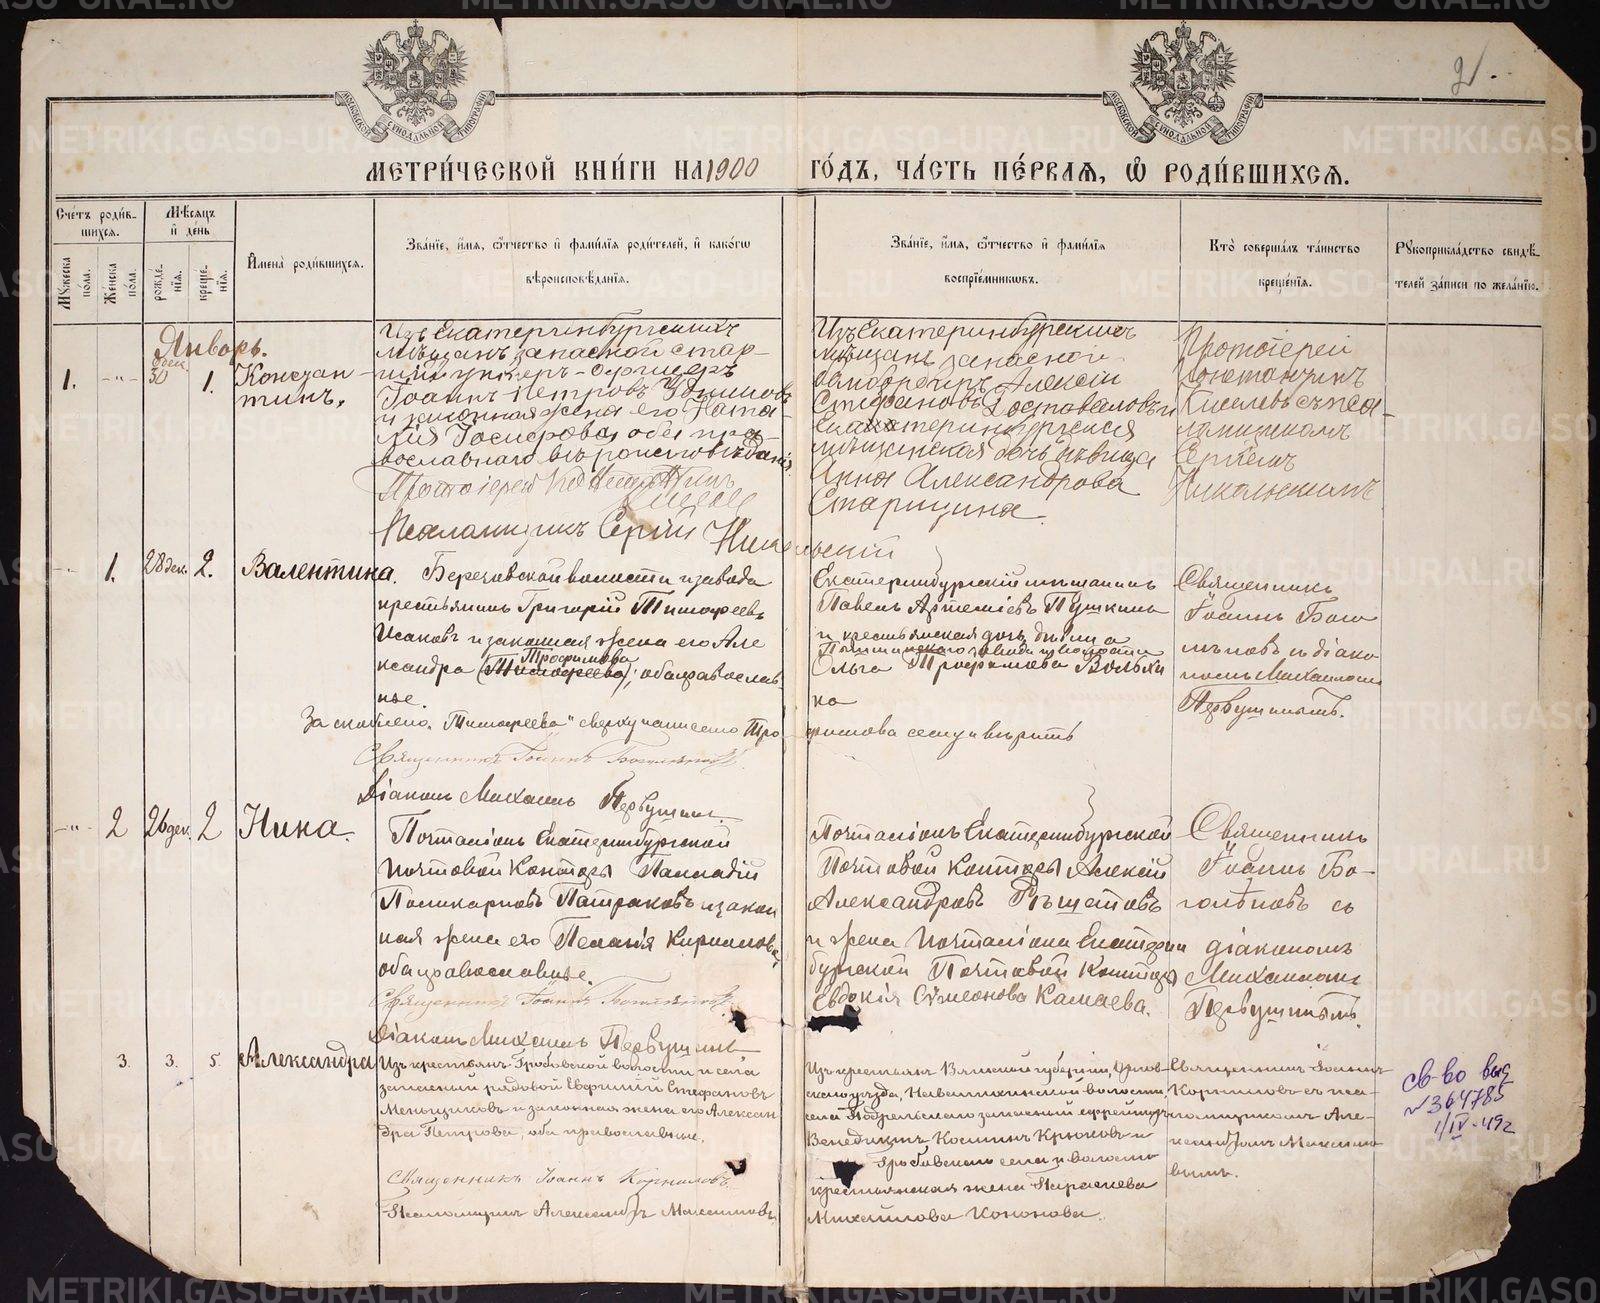 21.
МОСКОВСКОЙ СѴНОДАЛЬНОЙ ТИПОГРАФІИ
МОСКОВСКОЙ СѴНОДАЛЬНОЙ ТИПОГРАФІИ
МЕТРИ́ЧЕСКОЙ КНИ́ГИ НА 1900 ГО́ДЪ, ЧА́СТЬ ПЕ́РВАѦ, Ѡ҆ РОДИ́ВШИХСѦ.
Сче́тъ роди́в-
шихсѧ.
Мѣ́сѧцъ
и҆ де́нь
Мꙋ́жеска по́ла.
Же́нска по́ла.
рожде́-нїѧ.
креще́-нїѧ.
И҆мена̀ роди́вшихсѧ.
Зва́нїе, и҆́мѧ, ѻ҆́тчество и҆ фами́лїѧ роди́телей, и҆ како́гѡ
вѣроисповѣ́данїѧ.
Зва́нїе, и҆́мѧ, ѻ҆́тчество и҆ фами́лїѧ
воспрїе́мникѡвъ.
Кто̀ соверша́лъ та́инство
креще́нїѧ.
Рꙋкоприкла́дство свидѣ́-
телей за́писи по жела́нїю.
Январь.
1. -„- 30 дек. 1. Констан-
тинъ.
Изъ Екатеринбургскихъ
мѣщанъ запасной стар-
шій унтеръ-офицеръ
Іоаннъ Петровъ
и законная жена его Ната-
лія Іосифова, оба пра-
вославнаго вѣроисповѣданія
Протоіерей
Псаломщикъ Сергій Никольскій
Изъ Екатеринбургскихъ
мѣщанъ запасной
Алексій
Стефановъ Достоваловъ и
Екатеринбургская
мѣщанская дочь дѣвица
Анна Александрова
Старицина.
Протоіерей
Константинъ
Киселевъ съ пса-
ломщикомъ
Сергіемъ
Никольскимъ
-„- 1. 28 дек. 2. Валентина.
Березовской волости и завода
крестьянинъ Григорій Тимофеевъ
Исаковъ и законная жена его Але
ксандра (Тимофеева) Трофимова; оба православ-
ные.
Зачеркнуто „Тимофеева" сверху написано Тро
фимова сему и вѣрить
Священникъ Іоаннъ Боголѣповъ
Діаконъ Михаилъ Первушинъ.
Екатеринбургскій мѣщанинъ
Павелъ Артеміевъ Пушкинъ
и крестьянская дочь дѣвица
завода и волости
Ольга Трофимова Вольхи
на
Священникъ
Іоаннъ Бого
лѣповъ съ діако
номъ Михаиломъ
Первушинымъ.
-„- 2 26 дек. 2 Нина.
Почталіонъ Екатеринбургской
почтовой конторы Палладій
Поликарповъ Патраковъ и закон
ная жена его Пелагія Кириллова,
оба православные.
Священникъ Іоаннъ Боголѣповъ.
Діаконъ Михаилъ Первушинъ
Почталіонъ Екатеринбургской
Почтовой Конторы Алексій
Александровъ Рѣшетовъ
и жена почталіона Екатерин
бургской Почтовой Конторы
Евдокія Сѵмеонова Камаева.
Священникъ
Іоаннъ Бо-
голѣповъ съ
діакономъ
Михаиломъ
Первушинымъ.
3. 3. 5. Александра
Изъ крестьянъ Гробовской волости и села
запасный рядовой Евфимій Стефановъ
Меньщиковъ и законная жена его Алексан
дра Петрова, оба православные.
Священникъ Іоаннъ Корниловъ.
Псаломщикъ Александръ Максимовъ
Изъ крестьянъ Вятской губерніи, Орлов-
скаго уѣзда, волости,
села запасный ефрейторъ
Венедиктъ Космин Крюковъ и
Гробовскаго села и волости
крестьянская жена Параскева
Михайлова Кононова.
Священникъ Іоаннъ
Корниловъ съ пса-
ломщикомъ Але-
ксандромъ Максимо
вымъ.
св-во выд
№ 364785
1/IV-49г